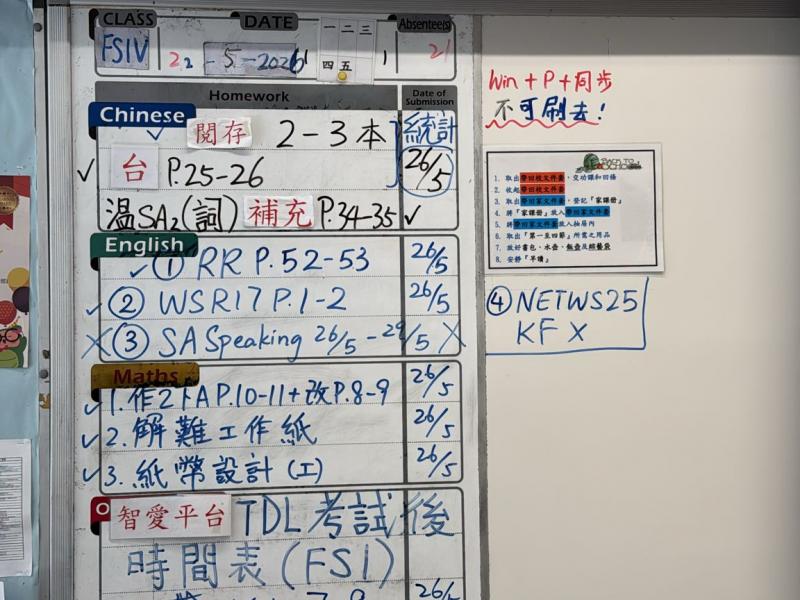 CLASS DATE Absentee(s)
FSIV 22 - 5 - 2026 一 二 三 四 五 21
Homework Date of Submission
Chinese 閱存 2-3本 統計
✓ 台 P.25-26 26/5
溫SA2(詞) 補充 P.34-35 ✓
English
✓ ① RR P.52-53 26/5
✓ ② WSR17 P.1-2 26/5
X ③ SA Speaking 26/5 - 29/5 X
Maths
✓ 1. 作2下A P.10-11+改P.8-9 26/5
✓ 2. 解難工作紙 26/5
✓ 3. 紙幣設計 (工) 26/5
智愛平台 TDL考試後
時間表(FS1)
7-9 26/5
Win + P + 同步
不可刷去!
BACK TO SCHOOL
1. 取出帶回校文件套，交功課和回條
2. 收起帶回校文件套
3. 取出帶回家文件套，登記「家課冊」
4. 將「家課冊」放入帶回家文件套
5. 將帶回家文件套放入抽屜內
6. 取出「第一至四節」所需之用品
7. 放好書包、水壺、飯壺及餐袋
8. 安靜「早讀」
④ NETWS25
KF X